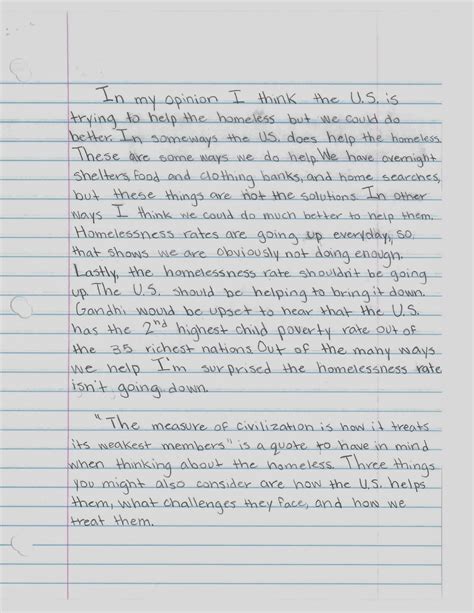 In my opinion I think the U.S. is
trying to help the homeless but we could do
better. In someways the U.S. does help the homeless.
These are some ways we do help. We have overnight
shelters, food and clothing banks, and home searches,
but these things are not the solutions. In other
ways I think we could do much better to help them.
Homelessness rates are going up everyday, so
that shows we are obviously not doing enough.
Lastly, the homelessness rate shouldn't be going
up. The U.S. should be helping to bring it down.
Gandhi would be upset to hear that the U.S.
has the 2nd highest child poverty rate out of
the 35 richest nations. Out of the many ways
we help I'm surprised the homelessness rate
isn't going down.
"The measure of civilization is how it treats
its weakest members" is a quote to have in mind
when thinking about the homeless. Three things
you might also consider are how the U.S. helps
them, what challenges they face, and how we
treat them.